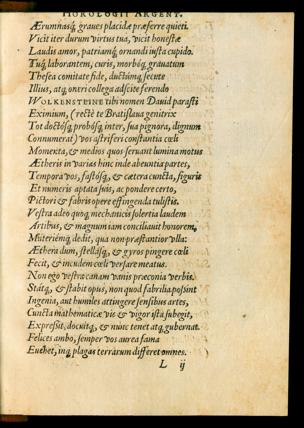 HOROLOGII ARGENT.
Ærumnasq́, graues placidæ præferre quieti.
Vicit iter durum virtus tua, vicit honestæ
Laudis amor, patriamq́, ornandi iusta cupido.
Tuq́, laborantem, curis, morbóq, grauatum
Thesea comitate fide, ductúmq, secute
Illius, atq, oneri collega adscite ferendo
WOLKENSTEINE tibi nomen Dauid parasti
Eximium, (recte te Bratislaua genitrix
Tot doctósq, probósq, inter, sua pignora, dignum
Connumerat) vos astriferi constantia cœli
Momenta, & medios quos seruant lumina motus
Ætheris in varias hinc inde abeuntia partes,
Tempora vos, fastósq, & cætera cuncta, figuris
Et numeris aptata suis, ac pondere certo,
Pictori & fabris opere effingenda tulistis.
Vestra adeo quoq, mechanicis solertia laudem
Artibus, & magnum iam conciliauit honorem,
Materiémq, dedit, qua non præstantior vlla:
Æthera dum, stellásq, & gyros pingere cœli
Fecit, & incudem cœli versare meatus.
Non ego vestra canam vanis præconia verbis.
Státq, & stabit opus, non quod fabrilia possint
Ingenia, aut humiles attingere sensibus artes,
Cuncta mathematicæ vis & vigor ista subegit,
Expressit, docuitq, & nunc tenet atq, gubernat.
Felices ambo, semper vos aurea fama
Euehet, inq, plagas terrarum differet omnes.
L ij